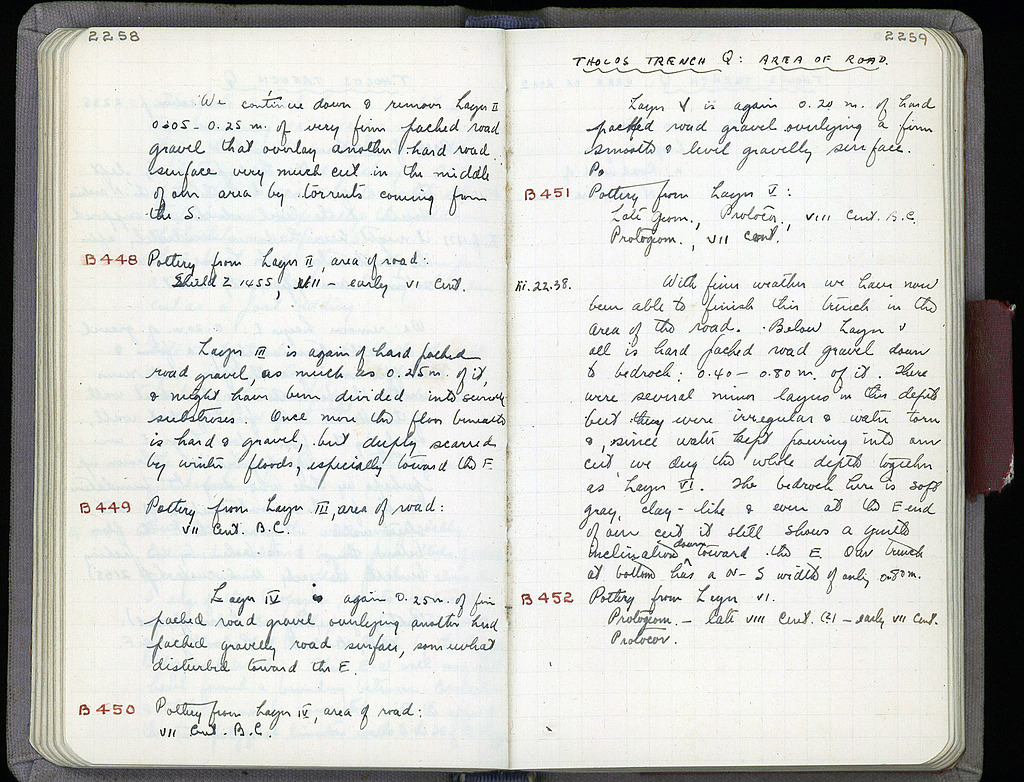 2258
We continue down & remove Layer II
0.05 - 0.25 m. of very firm packed road
gravel that overlay another hard road
surface very much cut in the middle
of our area by torrents coming from
the S.
B 448 Pottery from Layer II, area of road:
Shield Z 1455, VII - early VI Cent.
Layer III is again of hard packed
road gravel, as much as 0.25 m. of it,
& might have been divided into several
substroses. Once more the floor beneath
is hard & gravel, but deeply scarred
by winter floods, especially toward the E.
B 449 Pottery from Layer III, area of road:
VII Cent. B.C.
Layer IV is again 0.25 m. of firm
packed road gravel overlying another hard
packed gravelly road surface, somewhat
disturbed toward the E.
B 450 Pottery from Layer IV, area of road:
VII Cent. B.C.
2259
THOLOS TRENCH Q: AREA OF ROAD.
Layer V is again 0.20 m. of hard
packed road gravel overlying a firm
smooth & level gravelly surface.
Po
B 451 Pottery from Layer V:
Late Geom., Protocor., VIII Cent. B.C.
Protogeom., VII Cent.
III.22.38. With finer weather we have now
been able to finish this trench in the
area of the road. Below Layer V
all is hard packed road gravel down
to bedrock: 0.40 - 0.80 m. of it. There
were several minor layers in this depth
but they were irregular & water torn
&, since water kept pouring into our
cut, we dug the whole depth together
as Layer VI. The bedrock here is soft
gray, clay-like & even at the E end
of our cut it still shows a gentle
inclination down toward the E. Our trench
at bottom has a N-S width of only 0.80 m.
B 452 Pottery from Layer VI.
Protogeom. - late VIII Cent. (?) - early VII Cent.
Protocor.